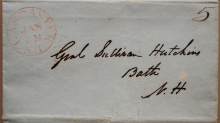 5
Genl Sullivan Hutchins
Bath
N. H